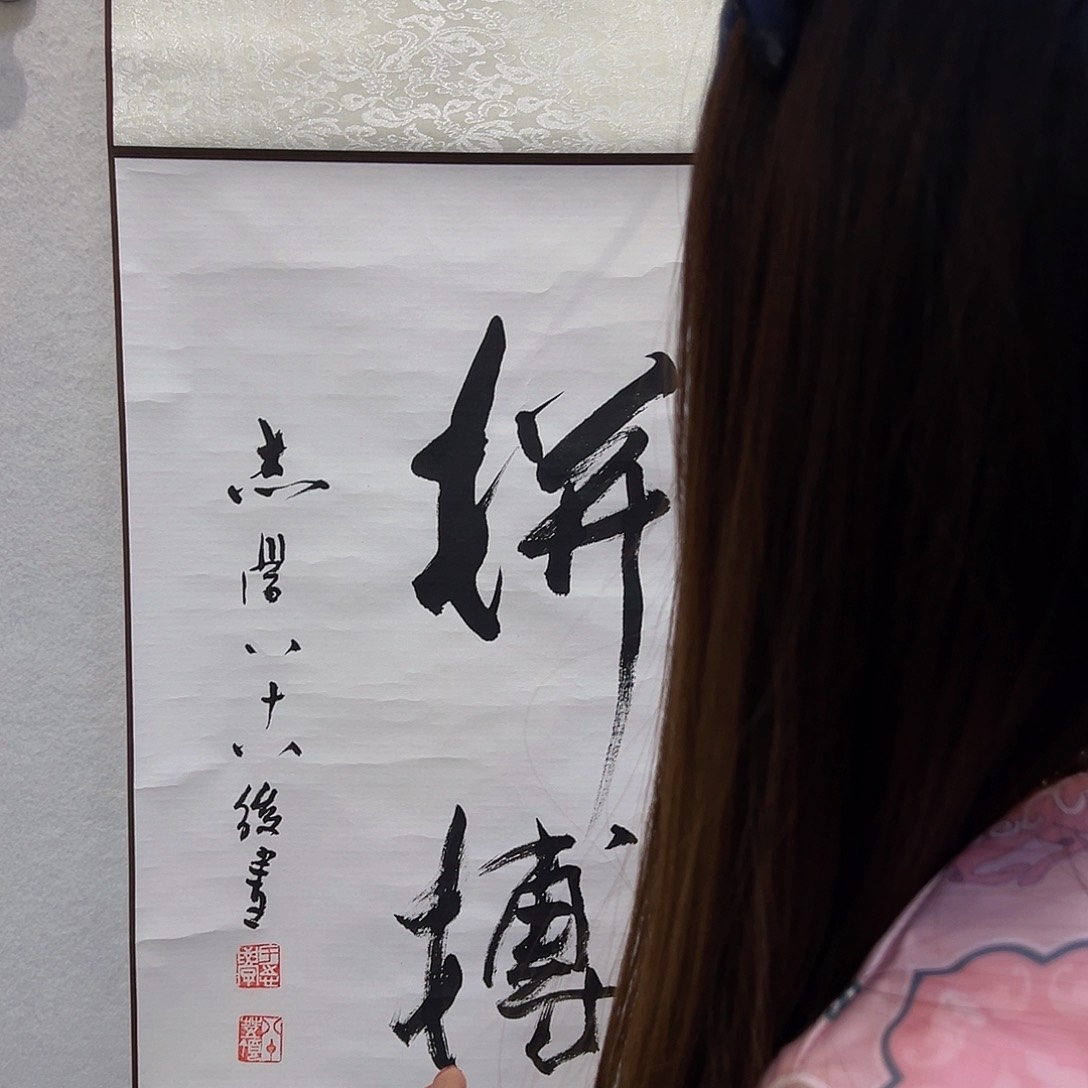 拼搏
志學八十八後書